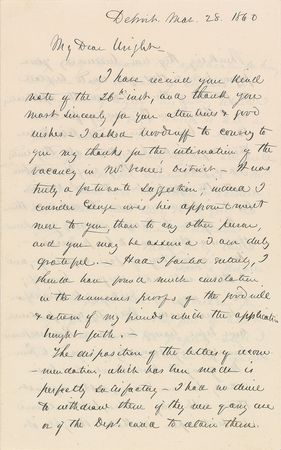 Detroit Mar. 28. 1860
My Dear Wright
I have received your kind
note of the 26th inst, and thank you
most sincerely for your attention & good
wishes - I asked Woodruff to convey to
you my thanks for the intimation of the
vacancy in Mr District - It was
truly a fortunate suggestion; indeed I
consider George owes his appointment
more to you, than to any other person,
and you may be assured I am duly
grateful. - Had I failed entirely, I
should have found much consolation
in the numerous proofs of the good will
& esteem of my friends which the application
brought forth. -
The disposition of the letters of recom
-mendation, which has been made is
perfectly satisfactory - I had no desire
to withdraw them if they were of any use
or if the Dept. cared to retain them.